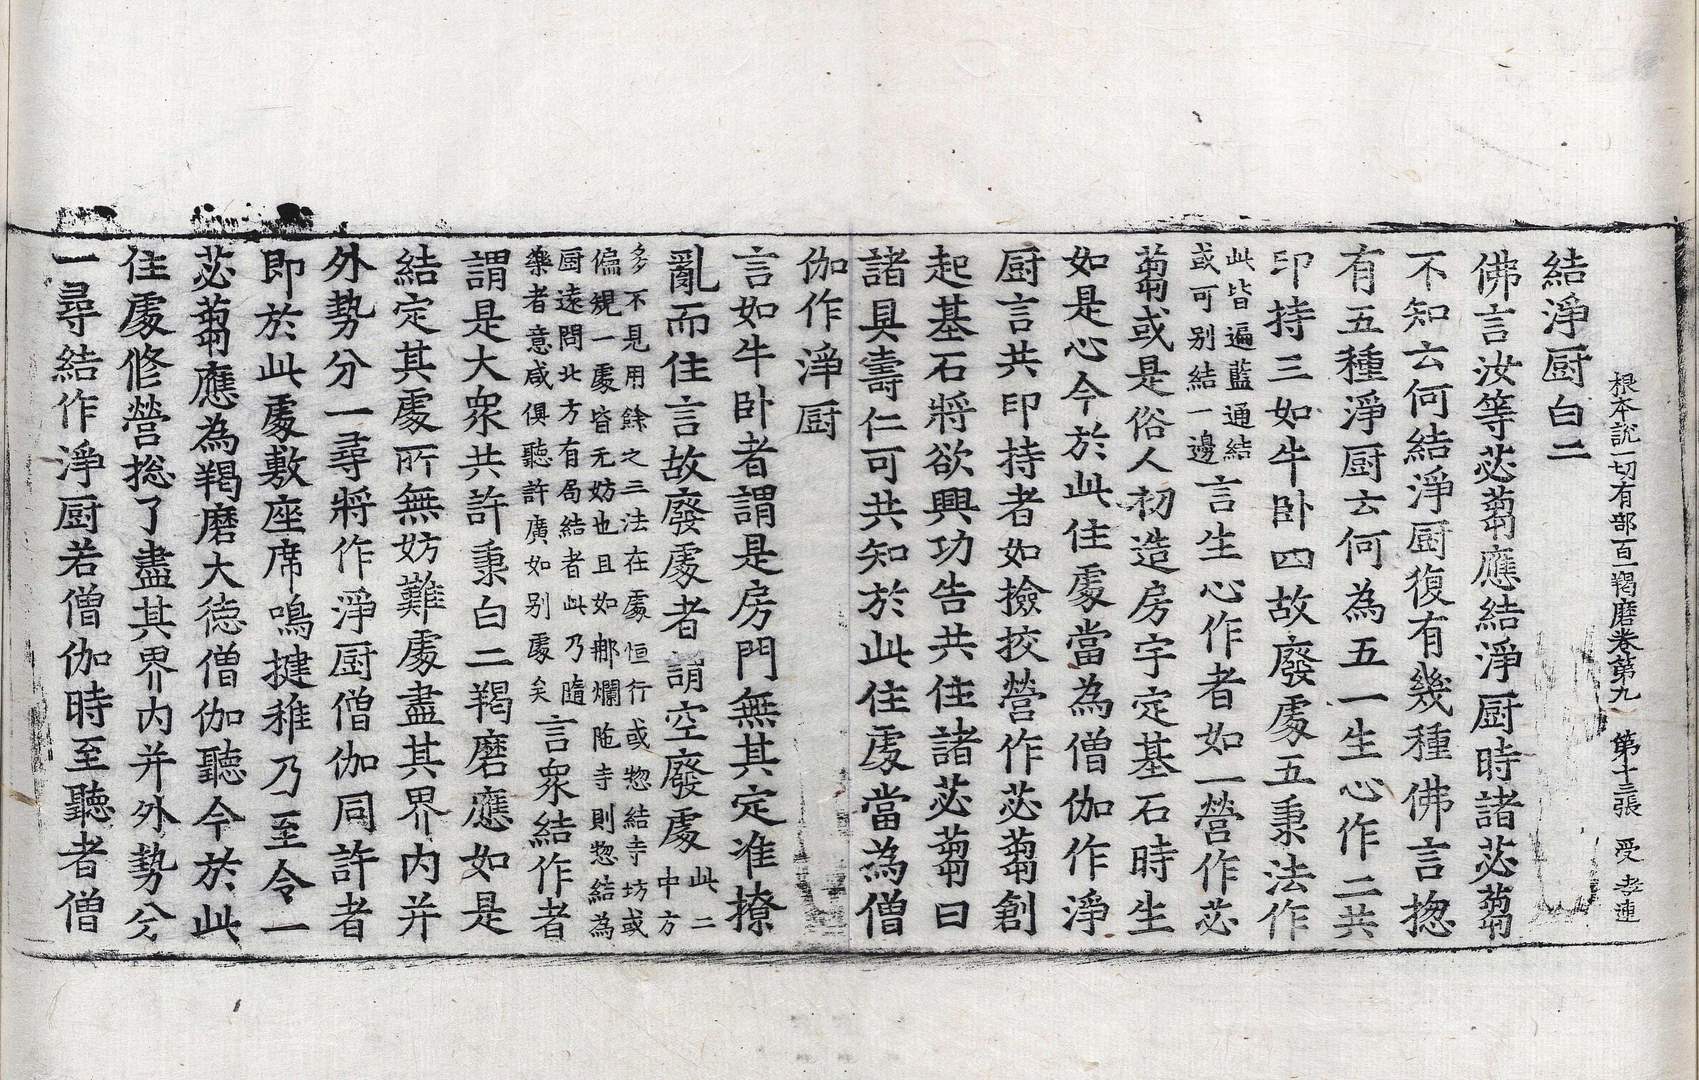 根本說一切有部百一羯磨卷第九　第十三張　受　孝連
結淨厨白二
佛言汝等苾蒭應結淨厨時諸苾蒭
不知云何結淨厨復有幾種佛言揔
有五種淨厨云何為五一生心作二共
印持三如牛卧四故廢處五秉法作
此皆遍藍通結
或可别結一邊
言生心作者如一營作苾
蒭或是俗人初造房宇定基石時生
如是心今於此住處當為僧伽作淨
厨言共印持者如撿挍營作苾蒭創
起基石將欲興功告共住諸苾蒭曰
諸具壽仁可共知於此住處當為僧
伽作淨厨
言如牛卧者謂是房門無其定准撩
亂而住言故廢處者謂空廢處
此二
中方
多不見用餘之三法在處恒行或惣結寺坊或
偏規一處皆无妨也且如那爛陁寺則惣結為
厨遠問北方有局結者此乃隨
樂者意咸俱聽許廣如别處矣
言衆結作者
謂是大衆共許秉白二羯磨應如是
結定其處所無妨難處盡其界内并
外勢分一尋將作淨厨僧伽同許者
即於此處敷座席鳴揵稚乃至令一
苾蒭應為羯磨大德僧伽聽今於此
住處修營揔了盡其界内并外勢分
一尋結作淨厨若僧伽時至聽者僧